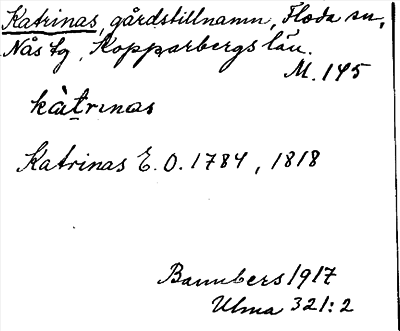 Katrinas, gårdstillnamn, Floda sn,
Nås tg, Kopparbergs län.
M. 145
kàtrınas
Katrinas E. O. 1784, 1818
Bannbers 1917
Ulma 321:2